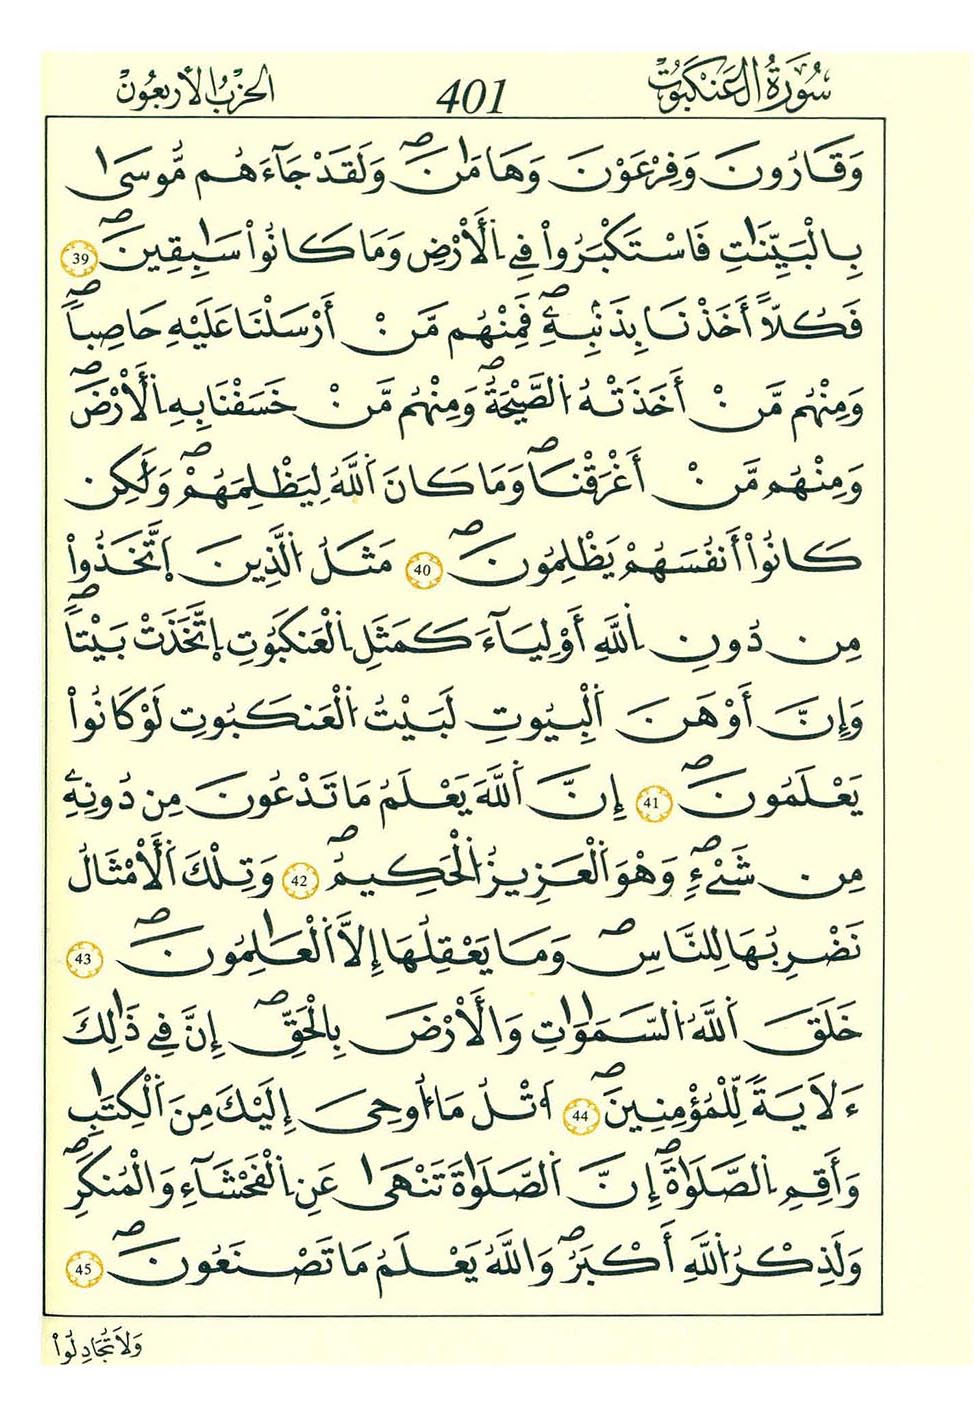 سُورَةُ الْعَنكَبُوتِ 401 الحِزْبُ الأَرْبَعُونْ
وَقَٰرُونَ وَفِرْعَوْنَ وَهَٰمَٰنَۖ وَلَقَدْ جَآءَهُم مُّوسَىٰ
بِالْبَيِّنَٰتِ فَاسْتَكْبَرُواْ فِے اِ۬لْأَرْضِ وَمَا كَانُواْ سَٰبِقِينَۖ 39
فَكُلّاً أَخَذْنَا بِذَنۢبِهِۦۖ فَمِنْهُم مَّنْ أَرْسَلْنَا عَلَيْهِ حَاصِباًۖ
وَمِنْهُم مَّنْ أَخَذَتْهُ اُ۬لصَّيْحَةُۖ وَمِنْهُم مَّنْ خَسَفْنَا بِهِ اِ۬لْأَرْضَۖ
وَمِنْهُم مَّنْ أَغْرَقْنَاۖ وَمَا كَانَ اَ۬للَّهُ لِيَظْلِمَهُمْۖ وَلَٰكِن
كَانُواْ أَنفُسَهُمْ يَظْلِمُونَۖ 40 مَثَلُ اُ۬لَّذِينَ اَ۪تَّخَذُواْ
مِن دُونِ اِ۬للَّهِ أَوْلِيَآءَ كَمَثَلِ اِ۬لْعَنكَبُوتِ اِ۪تَّخَذَتْ بَيْتاًۖ
وَإِنَّ أَوْهَنَ اَ۬لْبِيُوتِ لَبَيْتُ اُ۬لْعَنكَبُوتِ لَوْ كَانُواْ
يَعْلَمُونَۖ 41 إِنَّ اَ۬للَّهَ يَعْلَمُ مَا تَدْعُونَ مِن دُونِهِۦ
مِن شَےْءٍۖ وَهْوَ اَ۬لْعَزِيزُ اُ۬لْحَكِيمُۖ 42 وَتِلْكَ اَ۬لْأَمْثَٰلُ
نَضْرِبُهَا لِلنَّاسِۖ وَمَا يَعْقِلُهَا إِلَّا اَ۬لْعَٰلِمُونَۖ 43
خَلَقَ اَ۬للَّهُ اُ۬لسَّمَٰوَٰتِ وَالْأَرْضَ بِالْحَقِّۖ إِنَّ فِے ذَٰلِكَ
ءَلَايَةً لِّلْمُؤْمِنِينَۖ 44 اَ۟تْلُ مَا أُوحِيَ إِلَيْكَ مِنَ اَ۬لْكِتَٰبِ
وَأَقِمِ اِ۬لصَّلَوٰةَۖ إِنَّ اَ۬لصَّلَوٰةَ تَنْهَىٰ عَنِ اِ۬لْفَحْشَآءِ وَالْمُنكَرِۖ
وَلَذِكْرُ اُ۬للَّهِ أَكْبَرُۖ وَاللَّهُ يَعْلَمُ مَا تَصْنَعُونَۖ 45
وَلَا تُجَادِلُواْ